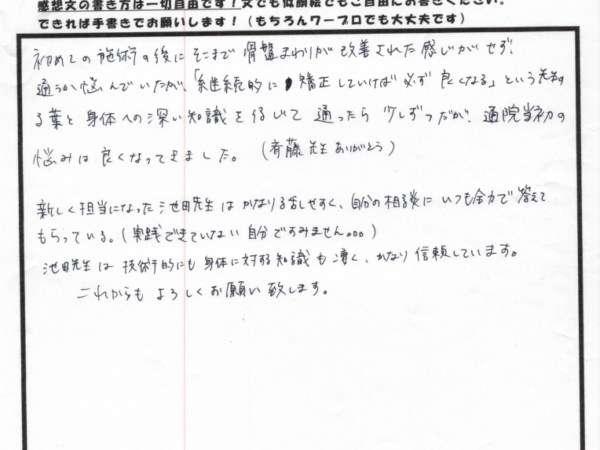 感想文の書き方は一切自由です！文でも似顔絵でもご自由にお書きください。
できれば手書きでお願いします！（もちろんワープロでも大丈夫です）
初めての施術の後にそこまで骨盤まわりが改善された感じがせず、
通うか悩んでいたが、「継続的に矯正していけば必ず良くなる」という先生の
る葉と身体への深い知識を信じて通ったら少しずつだが、通院当初の
悩みは良くなってきました。（斉藤先生ありがとう）
新しく担当になった池田先生はかなり話しやすく、自分の相談にいつも全力で答えて
もらっている。（実践できていない自分ですみません。。。）
池田先生は技術的にも身体に対する知識も凄く、かなり信頼しています。
これからもよろしくお願い致します。